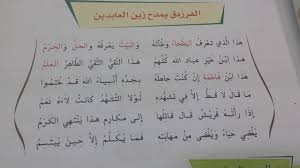 الفرزدق يمدح زين العابدين
هَذَا الَّذِي تَعْرِفُ البَطْحَاءُ وَطْأَتَهُ وَالبَيْتُ يَعْرِفُهُ وَالحِلُّ وَالحَرَمُ
هَذَا ابْنُ خَيْرِ عِبَادِ اللهِ كُلِّهِمُ هَذَا التَّقِيُّ النَّقِيُّ الطَّاهِرُ العَلَمُ
هَذَا ابْنُ فَاطِمَةٍ إِنْ كُنْتَ جَاهِلَهُ بِجَدِّهِ أَنْبِيَاءُ اللهِ قَدْ خُتِمُوا
مَا قَالَ لَا قَطُّ إِلَّا فِي تَشَهُّدِهِ لَوْلَا التَّشَهُّدُ كَانَتْ لَاءَهُ نَعَمُ
إِذَا رَأَتْهُ قُرَيْشٌ قَالَ قَائِلُهَا إِلَى مَكَارِمِ هَذَا يَنْتَهِي الكَرَمُ
يُغْضِي حَيَاءً وَيُغْضَى مِنْ مَهَابَتِهِ فَمَا يُكَلَّمُ إِلَّا حِينَ يَبْتَسِمُ